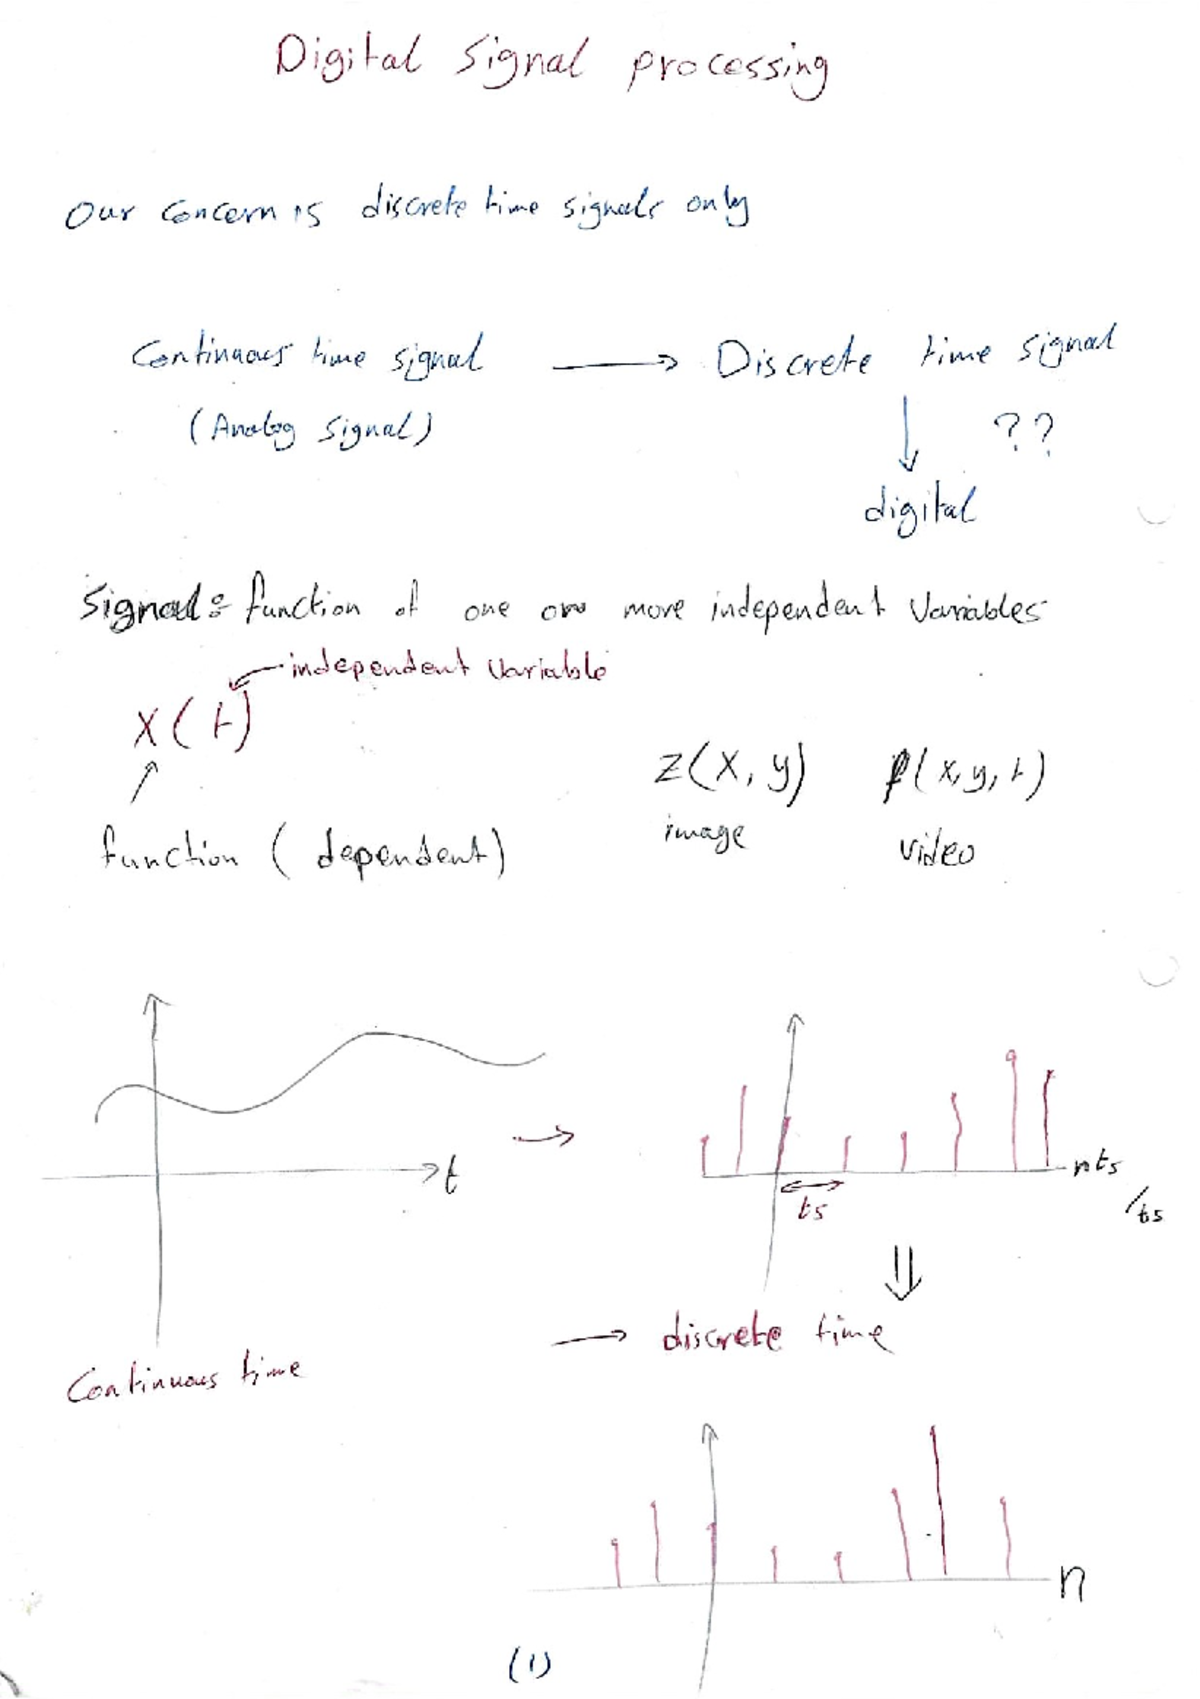 Digital Signal processing
Our Concern is discrete time signals only
Continuous time signal → Discrete time signal
(Analog Signal) ↓ ??
digital
Signal: function of one or more independent Variables
independent variable
x(t)
z(x, y) f(x, y, t)
function (dependent) image video
t → nts
ts /ts
⇓
→ discrete time
Continuous time
n
(1)